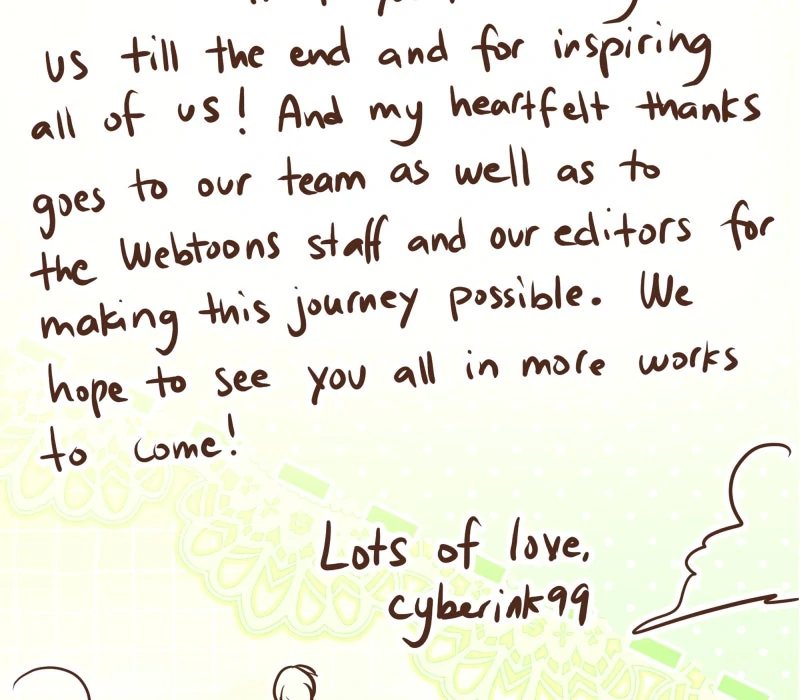 us till the end and for inspiring
all of us! And my heartfelt thanks
goes to our team as well as to
the Webtoons staff and our editors for
making this journey possible. We
hope to see you all in more works
to come!
Lots of love,
cyberink99